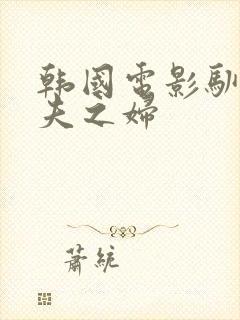 韩国电影驯
夫之婦
萧統